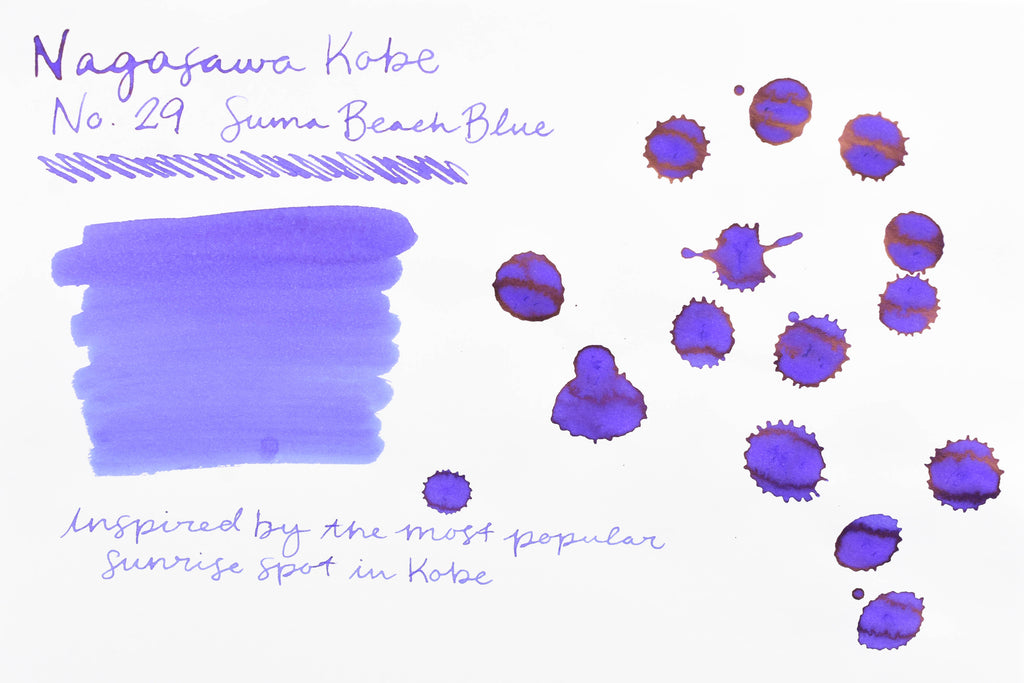 Nagasawa Kobe
No. 29 Suma Beach Blue
Inspired by the most popular
sunrise spot in Kobe